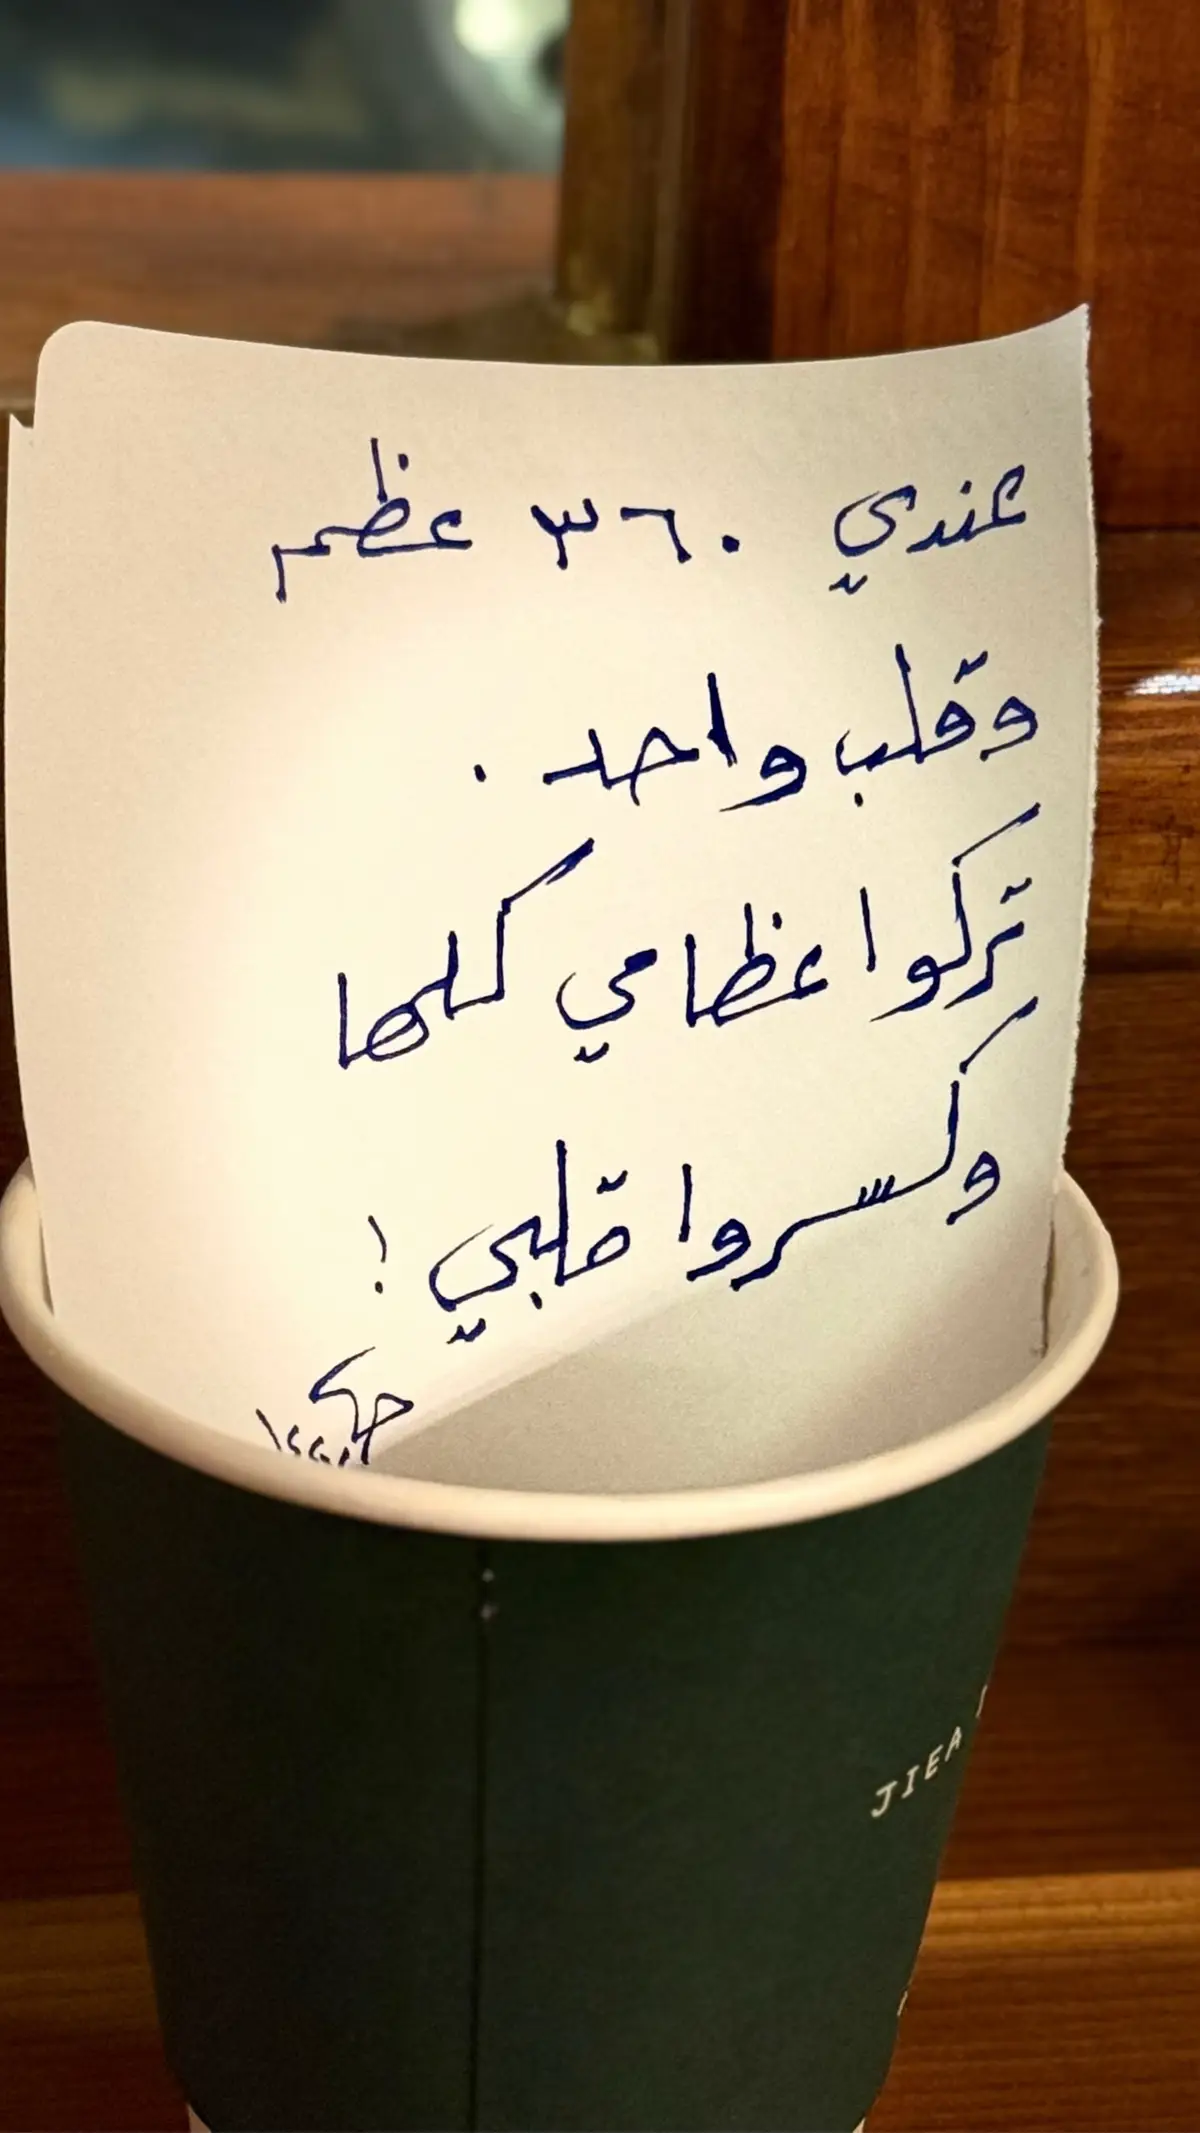 عندي ٣٦٠ عظم
وقلب واحد .
تركوا عظامي كلها
وكسروا قلبي !
JIEA